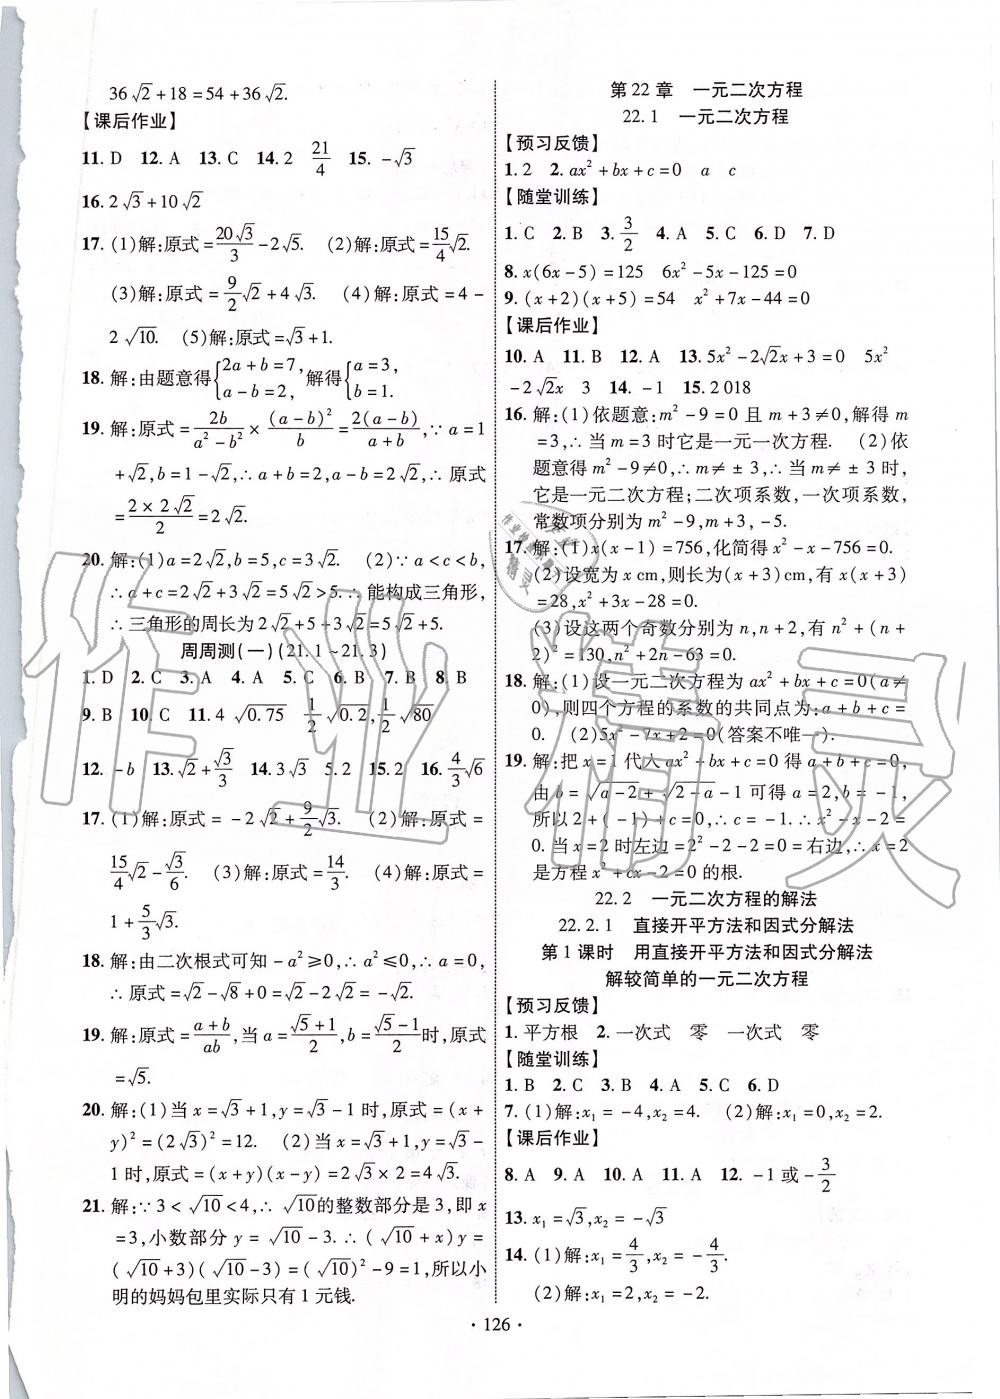 36√2+18=54+36√2.
【课后作业】
11. D 12. A 13. C 14. 2 21/4 15. -√3
16. 2√3+10√2
17. (1)解:原式=20√3/3-2√5. (2)解:原式=15/4√2.
(3)解:原式=9/2√2+4√3. (4)解:原式=4-
2√10. (5)解:原式=√3+1.
18. 解:由题意得{2a+b=7, a-b=2, 解得{a=3, b=1.
19. 解:原式=2b/(a²-b²)×(a-b)²/b=2(a-b)/(a+b),∵a=1
+√2,b=1-√2,∴a+b=2,a-b=2√2,∴原式
=(2×2√2)/2=2√2.
20. 解:(1)a=2√2,b=5,c=3√2. (2)∵a<c<b,
∴a+c=2√2+3√2=5√2>5.∴能构成三角形,
∴三角形的周长为2√2+5+3√2=5√2+5.
周周测(一)(21.1~21.3)
1. D 2. C 3. A 4. A 5. C 6. B 7. B 8. B
9. B 10. C 11. 4√0.75 1/2√0.2,1/2√80
12. -b 13. √2+√3/3 14. 3√3 5.2 15. 2 16. 4/3√6
17. (1)解:原式=-2√2+9/2√3. (2)解:原式=
15/4√2-√3/6. (3)解:原式=14/3. (4)解:原式=
1+5/3√3.
18. 解:由二次根式可知-a²≥0,∴a²≤0,∴a=0,
∴原式=√2-√8+0=√2-2√2=-√2.
19. 解:原式=(a+b)/ab,当a=(√5+1)/2,b=(√5-1)/2时,原式
=√5.
20. 解:(1)当x=√3+1,y=√3-1时,原式=(x+
y)²=(2√3)²=12. (2)当x=√3+1,y=√3-
1时,原式=(x+y)(x-y)=2√3×2=4√3.
21. 解:∵3<√10<4,∴√10的整数部分是3,即x
=3,小数部分y=√10-3.∴(√10+x)y=
(√10+3)(√10-3)=(√10)²-9=1,所以小
明的妈妈包里实际只有1元钱.
第22章 一元二次方程
22.1 一元二次方程
【预习反馈】
1. 2 2. ax²+bx+c=0 a c
【随堂训练】
1. C 2. B 3. 3/2 4. A 5. C 6. D 7. D
8. x(6x-5)=125 6x²-5x-125=0
9. (x+2)(x+5)=54 x²+7x-44=0
【课后作业】
10. A 11. B 12. A 13. 5x²-2√2x+3=0 5x²
-2√2x 3 14. -1 15. 2 018
16. 解:(1)依题意:m²-9=0且m+3≠0,解得m
=3,∴当m=3时它是一元一次方程. (2)依
题意得m²-9≠0,∴m≠±3,∴当m≠±3时,
它是一元二次方程;二次项系数,一次项系数,
常数项分别为m²-9,m+3,-5.
17. 解:(1)x(x-1)=756,化简得x²-x-756=0.
(2)设宽为x cm,则长为(x+3)cm,有x(x+3)
=28,x²+3x-28=0.
(3)设这两个奇数分别为n,n+2,有n²+(n+
2)²=130,n²+2n-63=0.
18. 解:(1)设一元二次方程为ax²+bx+c=0(a≠
0),则四个方程的系数的共同点为:a+b+c=
0. (2)5x²-7x+2=0(答案不唯一).
19. 解:把x=1代入ax²+bx+c=0得a+b+c=0,
由b=√a-2+√2-a-1可得a=2,b=-1,
所以2+(-1)+c=0,c=-1.∴x²-x-2=
0.当x=2时左边=2²-2-2=0=右边,∴x=2
是方程x²+cx-2=0的根.
22.2 一元二次方程的解法
22.2.1 直接开平方法和因式分解法
第1课时 用直接开平方法和因式分解法
解较简单的一元二次方程
【预习反馈】
1. 平方根 2. 一次式 零 一次式 零
【随堂训练】
1. B 2. C 3. C 4. C 5. C 6. D
7. (1)解:x₁=-4,x₂=4. (2)解:x₁=0,x₂=2.
【课后作业】
8. A 9. A 10. A 11. A 12. -1或-3/2
13. x₁=√3,x₂=-√3
14. (1)解:x₁=4/3,x₂=-4/3.
(2)解:x₁=2,x₂=-2.
·126·
作业精灵